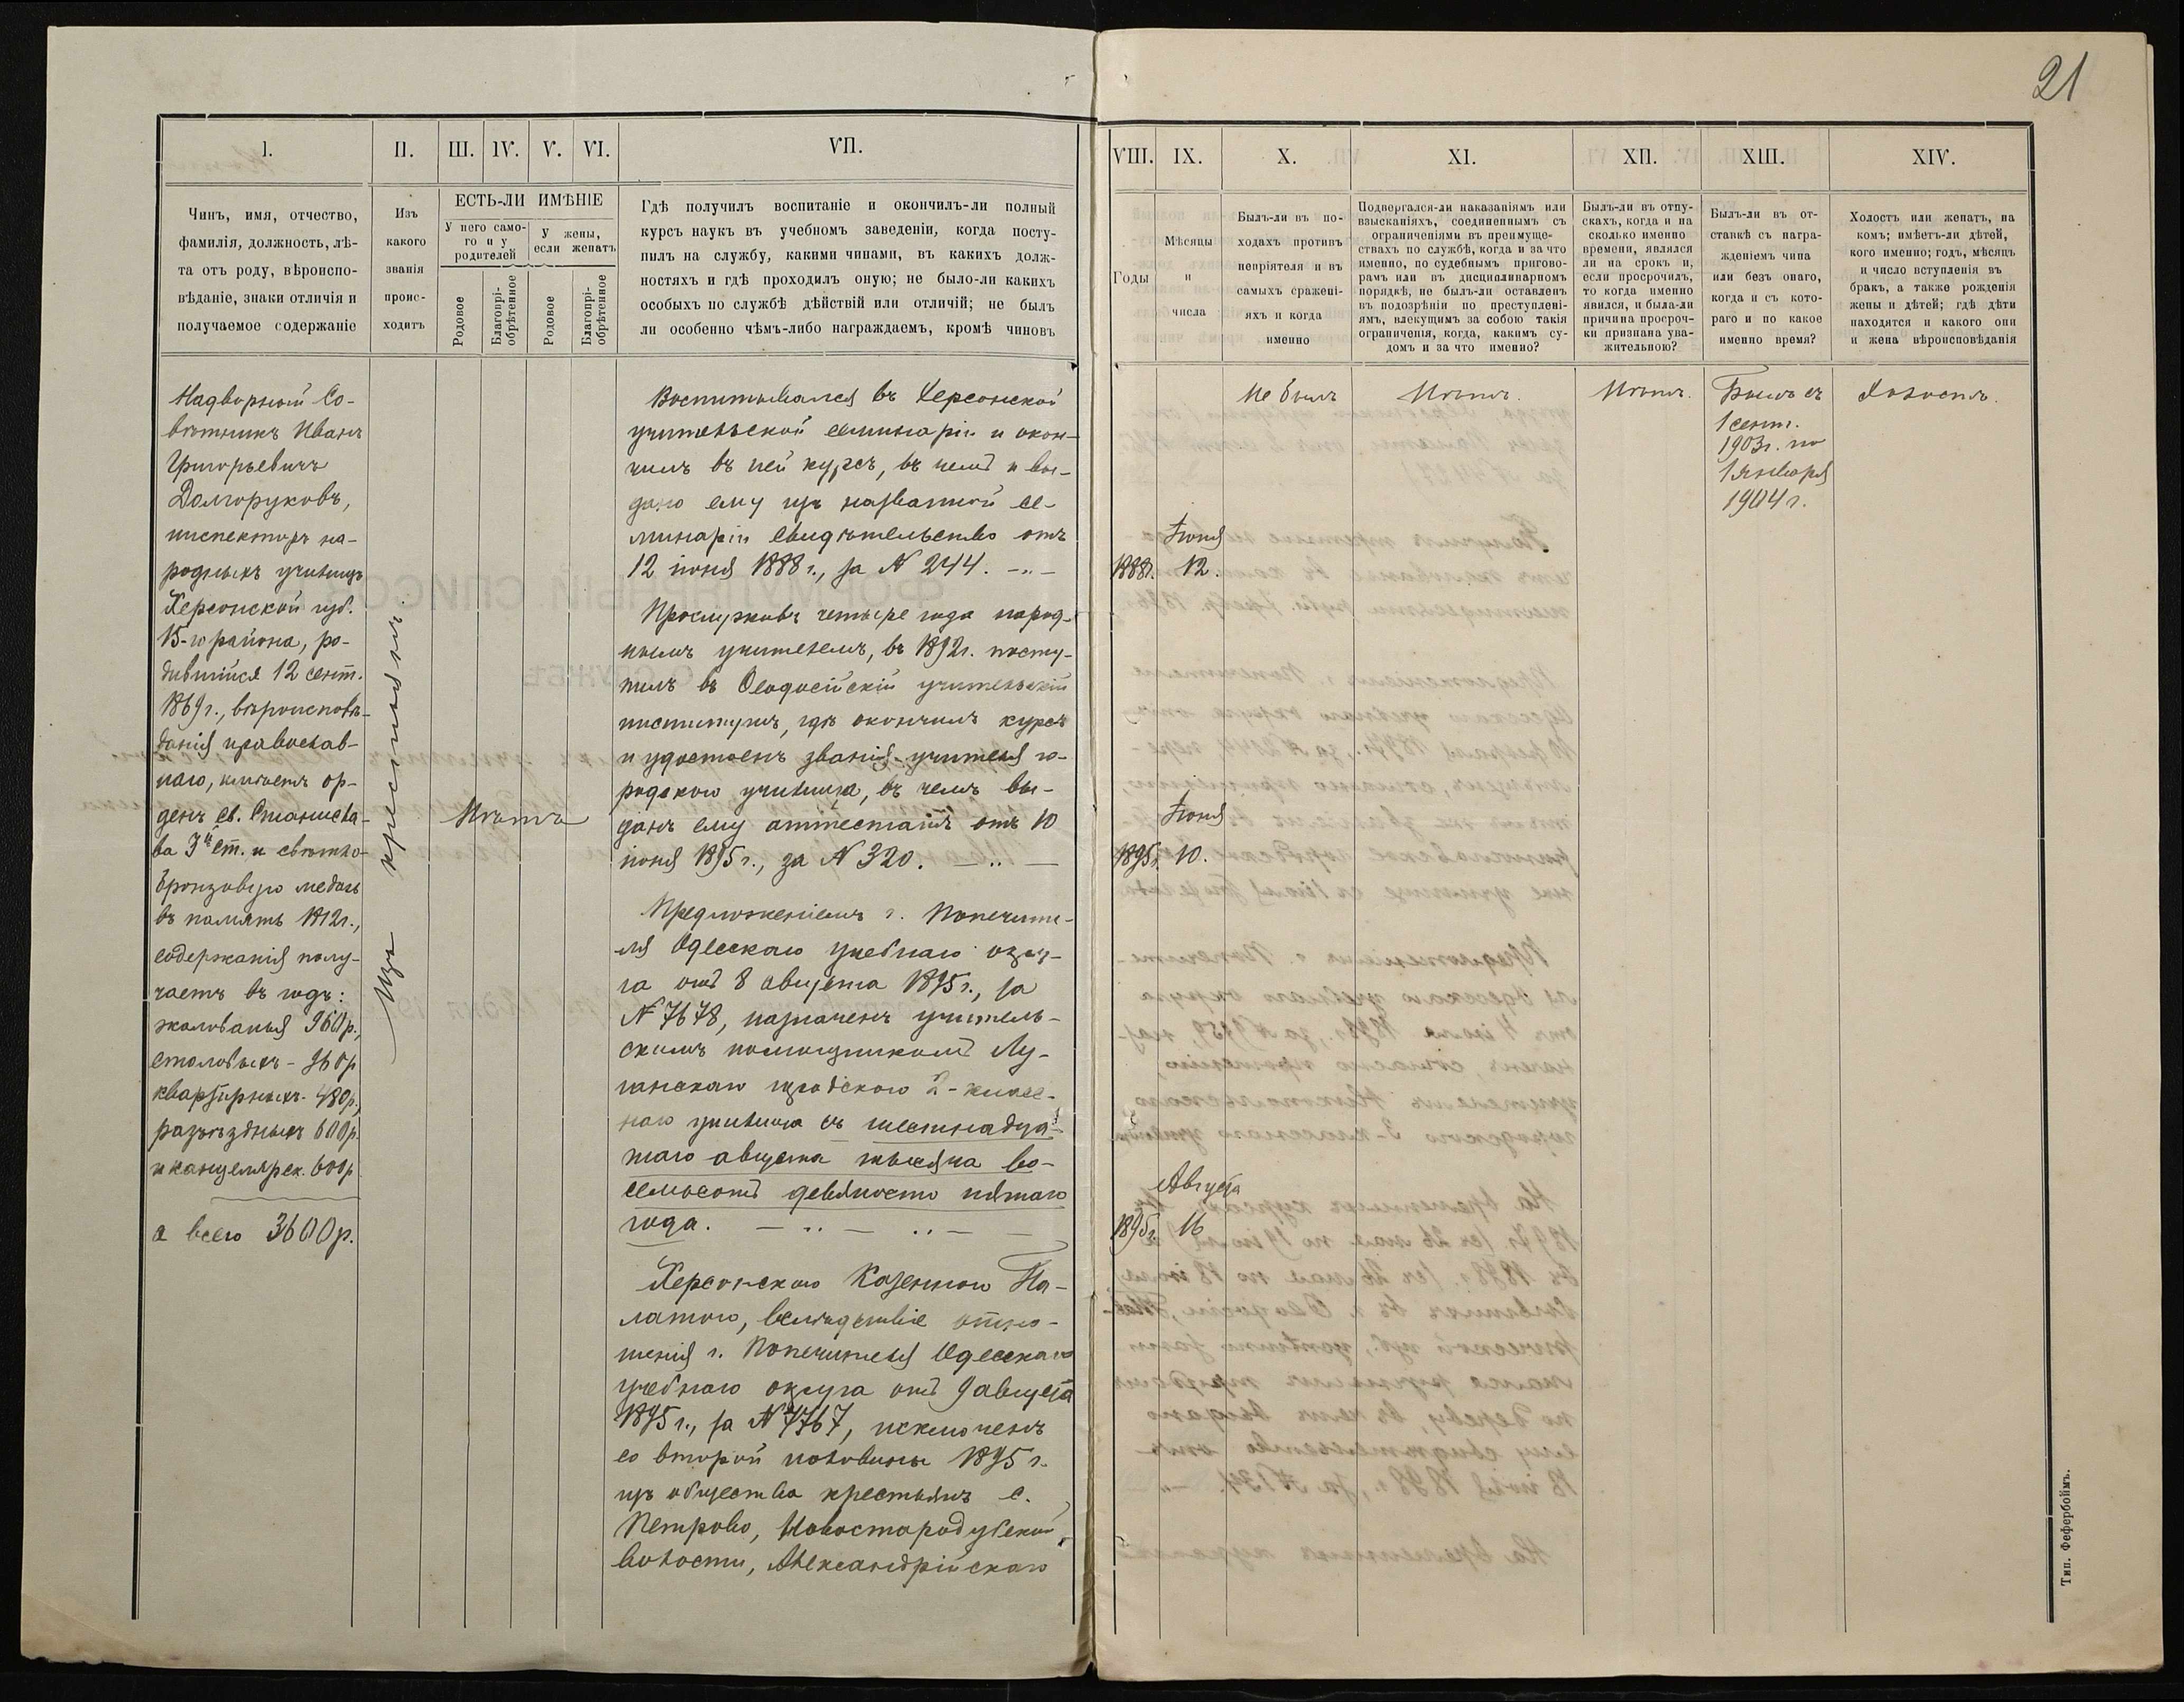 21
I.
II.
III.
IV.
V.
VI.
VII.
Чинъ, имя, отчество,
фамилія, должность, лѣ-
та отъ роду, вѣроиспо-
вѣданіе, знаки отличія и
получаемое содержаніе
Изъ
какого
званія
проис-
ходитъ
ЕСТЬ-ЛИ ИМѢНІЕ
У него само-
го и у
родителей
У жены,
если женатъ
Родовое
Благопрі-
обрѣтенное
Родовое
Благопрі-
обрѣтенное
Гдѣ получилъ воспитаніе и окончилъ-ли полный
курсъ наукъ въ учебномъ заведеніи, когда посту-
пилъ на службу, какими чинами, въ какихъ долж-
ностяхъ и гдѣ проходилъ оную; не было-ли какихъ
особыхъ по службѣ дѣйствій или отличій; не былъ
ли особенно чѣмъ-либо награждаемъ, кромѣ чиновъ
Надворный Со-
вѣтникъ Иванъ
Григорьевичъ
Долгоруковъ,
инспекторъ на-
родныхъ училищъ
Херсонской губ.
15-го района, ро-
дившійся 12 сент.
1869 г., вѣроисповѣ-
данія православ-
наго, имѣетъ ор-
денъ св. Станисла-
ва 3й ст. и свѣтло-
бронзовую медаль
въ память 1812 г.,
содержанія полу-
чаетъ въ годъ:
жалованья 960 р.,
столовыхъ - 960 р
квартирныхъ - 480 р.,
разъѣздныхъ 600 р.
и канцелярск. 600 р.
а всего 3600 р.
Изъ крестьянъ.
Нѣтъ
Воспитывался въ Херсонской
учительской семинаріи и окон-
чилъ въ ней курсъ, въ чемъ и вы-
дано ему изъ названной се-
минаріи свидѣтельство отъ
12 іюня 1888 г., за № 244.
Прослуживъ четыре года народ-
нымъ учителемъ, въ 1892 г. посту-
пилъ въ Ѳеодосійскій учительскій
институтъ, гдѣ окончилъ курсъ
и удостоенъ званія учителя го-
родского училища, въ чемъ вы-
данъ ему аттестатъ отъ 10
іюня 1895 г., за № 320.
Предложеніемъ г. Попечите-
ля Одесскаго учебнаго окру-
га отъ 8 августа 1895 г., за
№ 7678, назначенъ учитель-
скимъ помощникомъ Лу-
ганскаго городского 2-класс-
наго училища съ шестнадца-
таго августа тысяча во-
семьсотъ девяносто пятаго
года.
Херсонскою Казенною Па-
латою, вслѣдствіе отно-
шенія г. Попечителя Одесскаго
учебнаго округа отъ 9 августа
1895 г., за № 7767, исключенъ
со второй половины 1895 г.
изъ общества крестьянъ с.
Петрово, Новостародубской
волости, Александрійскаго
VIII.
IX.
X.
XI.
XII.
XIII.
XIV.
Годы
Мѣсяцы
и
числа
Былъ-ли въ по-
ходахъ противъ
непріятеля и въ
самыхъ сражені-
яхъ и когда
именно
Подвергался-ли наказаніямъ или
взысканіяхъ, соединеннымъ съ
ограниченіями въ преимуще-
ствахъ по службѣ, когда и за что
именно, по судебнымъ пригово-
рамъ или въ дисциплинарномъ
порядкѣ, не былъ-ли оставленъ
въ подозрѣніи по преступлені-
ямъ, влекущимъ за собою такія
ограниченія, когда, какимъ су-
домъ и за что именно?
Былъ-ли въ отпу-
скахъ, когда и на
сколько именно
времени, являлся
ли на срокъ и,
если просрочилъ,
то когда именно
явился, и была-ли
причина просроч-
ки признана ува-
жительною?
Былъ-ли въ от-
ставкѣ съ награ-
жденіемъ чина
или безъ онаго,
когда и съ кото-
раго и по какое
именно время?
Холостъ или женатъ, на
комъ; имѣетъ-ли дѣтей,
кого именно; годъ, мѣсяцъ
и число вступленія въ
бракъ, а также рожденія
жены и дѣтей; гдѣ дѣти
находятся и какого они
и жена вѣроисповѣданія
Не былъ
Нѣтъ.
Нѣтъ.
Былъ съ
1 сент.
1903 г. по
1 января
1904 г.
Холостъ.
Іюня
1888 г. 12.
Іюня
1895 г. 10.
Августа
1895 г. 16
Тип. Фефербоймъ.